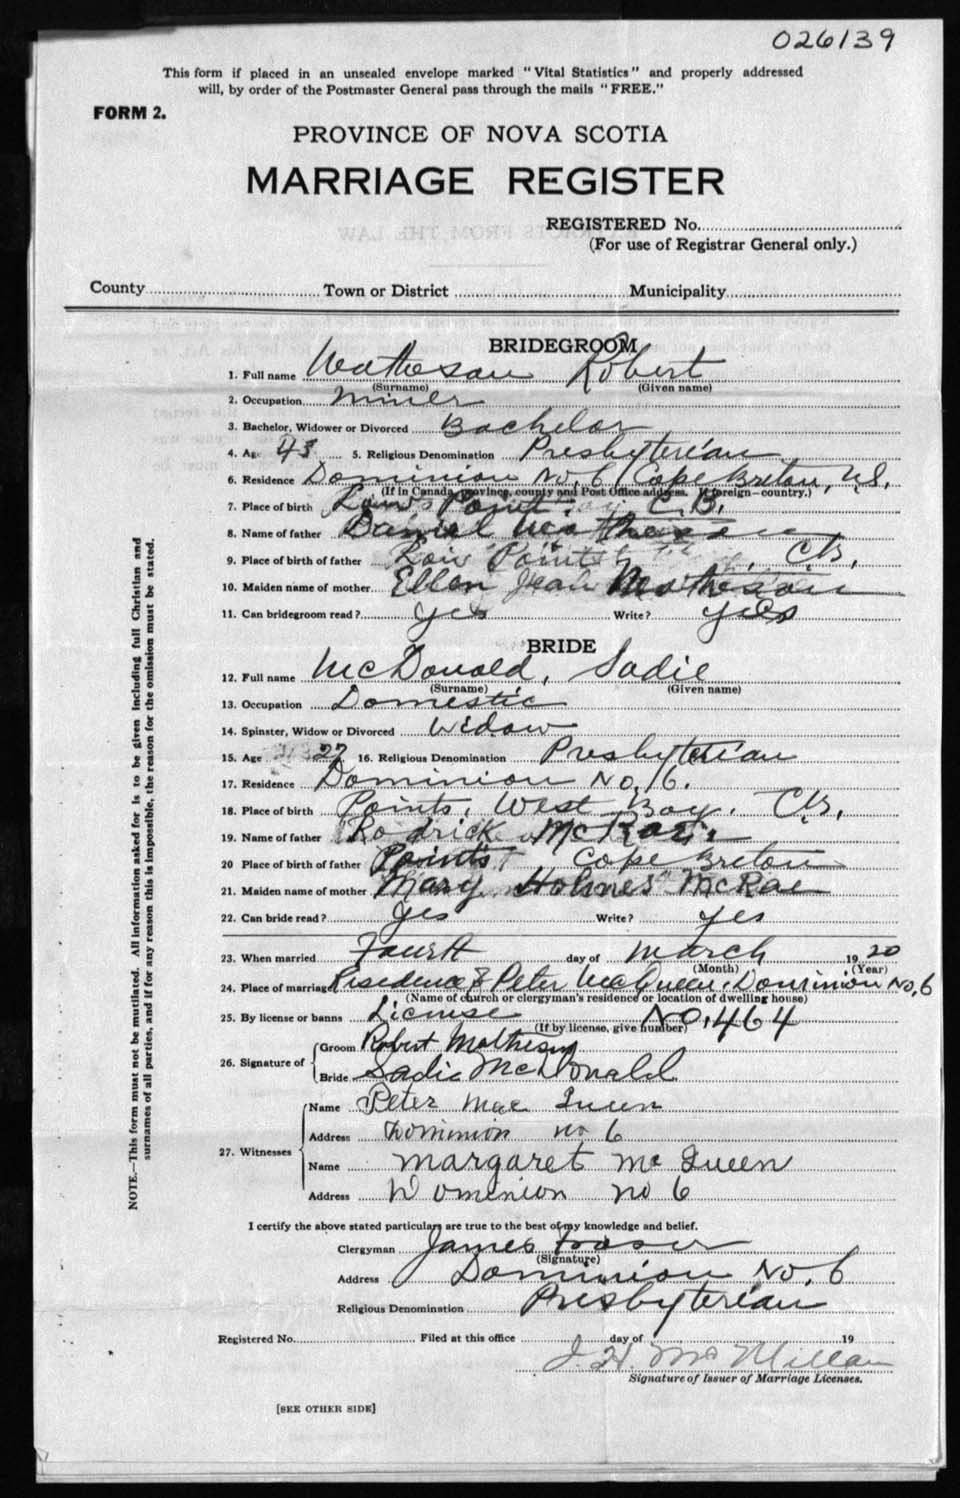 026139
This form if placed in an unsealed envelope marked "Vital Statistics" and properly addressed
will, by order of the Postmaster General pass through the mails "FREE."
FORM 2.
PROVINCE OF NOVA SCOTIA
MARRIAGE REGISTER
REGISTERED No.
(For use of Registrar General only.)
County Town or District Municipality
BRIDEGROOM
1. Full name Matheson Robert
(Surname) (Given name)
2. Occupation Miner
3. Bachelor, Widower or Divorced Bachelor
4. Age 43 5. Religious Denomination Presbyterian
6. Residence Dominion No. 6, Cape Breton, N.S.
(If in Canada, province, county and Post Office address. If foreign—country.)
7. Place of birth Point, C.B.
8. Name of father Daniel Matheson
9. Place of birth of father Point C.B.
10. Maiden name of mother Ellen Jean Matheson
11. Can bridegroom read? yes Write? yes
BRIDE
12. Full name McDonald, Sadie
(Surname) (Given name)
13. Occupation Domestic
14. Spinster, Widow or Divorced Widow
15. Age 27 16. Religious Denomination Presbyterian
17. Residence Dominion No. 6.
18. Place of birth Points, West Bay. C.B.
19. Name of father Rodrick McRae
20 Place of birth of father Points, Cape Breton
21. Maiden name of mother Mary Holmes McRae
22. Can bride read? yes Write? yes
23. When married Fourth day of March 1920
(Month) (Year)
24. Place of marriage Residence of Peter McQueen, Dominion No. 6
(Name of church or clergyman's residence or location of dwelling house)
25. By license or banns License No. 464
(If by license, give number)
26. Signature of Groom Robert Matheson
Bride Sadie McDonald
27. Witnesses Name Peter Mac Queen
Address Dominion no 6
Name Margaret Mc Queen
Address Dominion no 6
I certify the above stated particulars are true to the best of my knowledge and belief.
Clergyman James Fraser
(Signature)
Address Dominion No. 6
Religious Denomination Presbyterian
Registered No. Filed at this office day of 19
J. H. McMillan
Signature of Issuer of Marriage Licenses.
[SEE OTHER SIDE]
NOTE.—This form must not be mutilated. All information asked for is to be given including full Christian and
surnames of all parties, and if for any reason this is impossible, the reason for the omission must be stated.